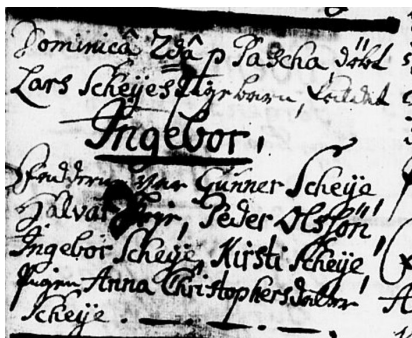 Dominicâ 2dâ p Pascha, döbt
Lars Scheyes barn, kaldet
Ingebor,
Faddere var Gunner Scheÿe,
Halvar Peder Olssön,
Ingebor Scheÿe, Kirsti Scheÿe,
Pigen Anna Christophersdatter
Scheÿe.